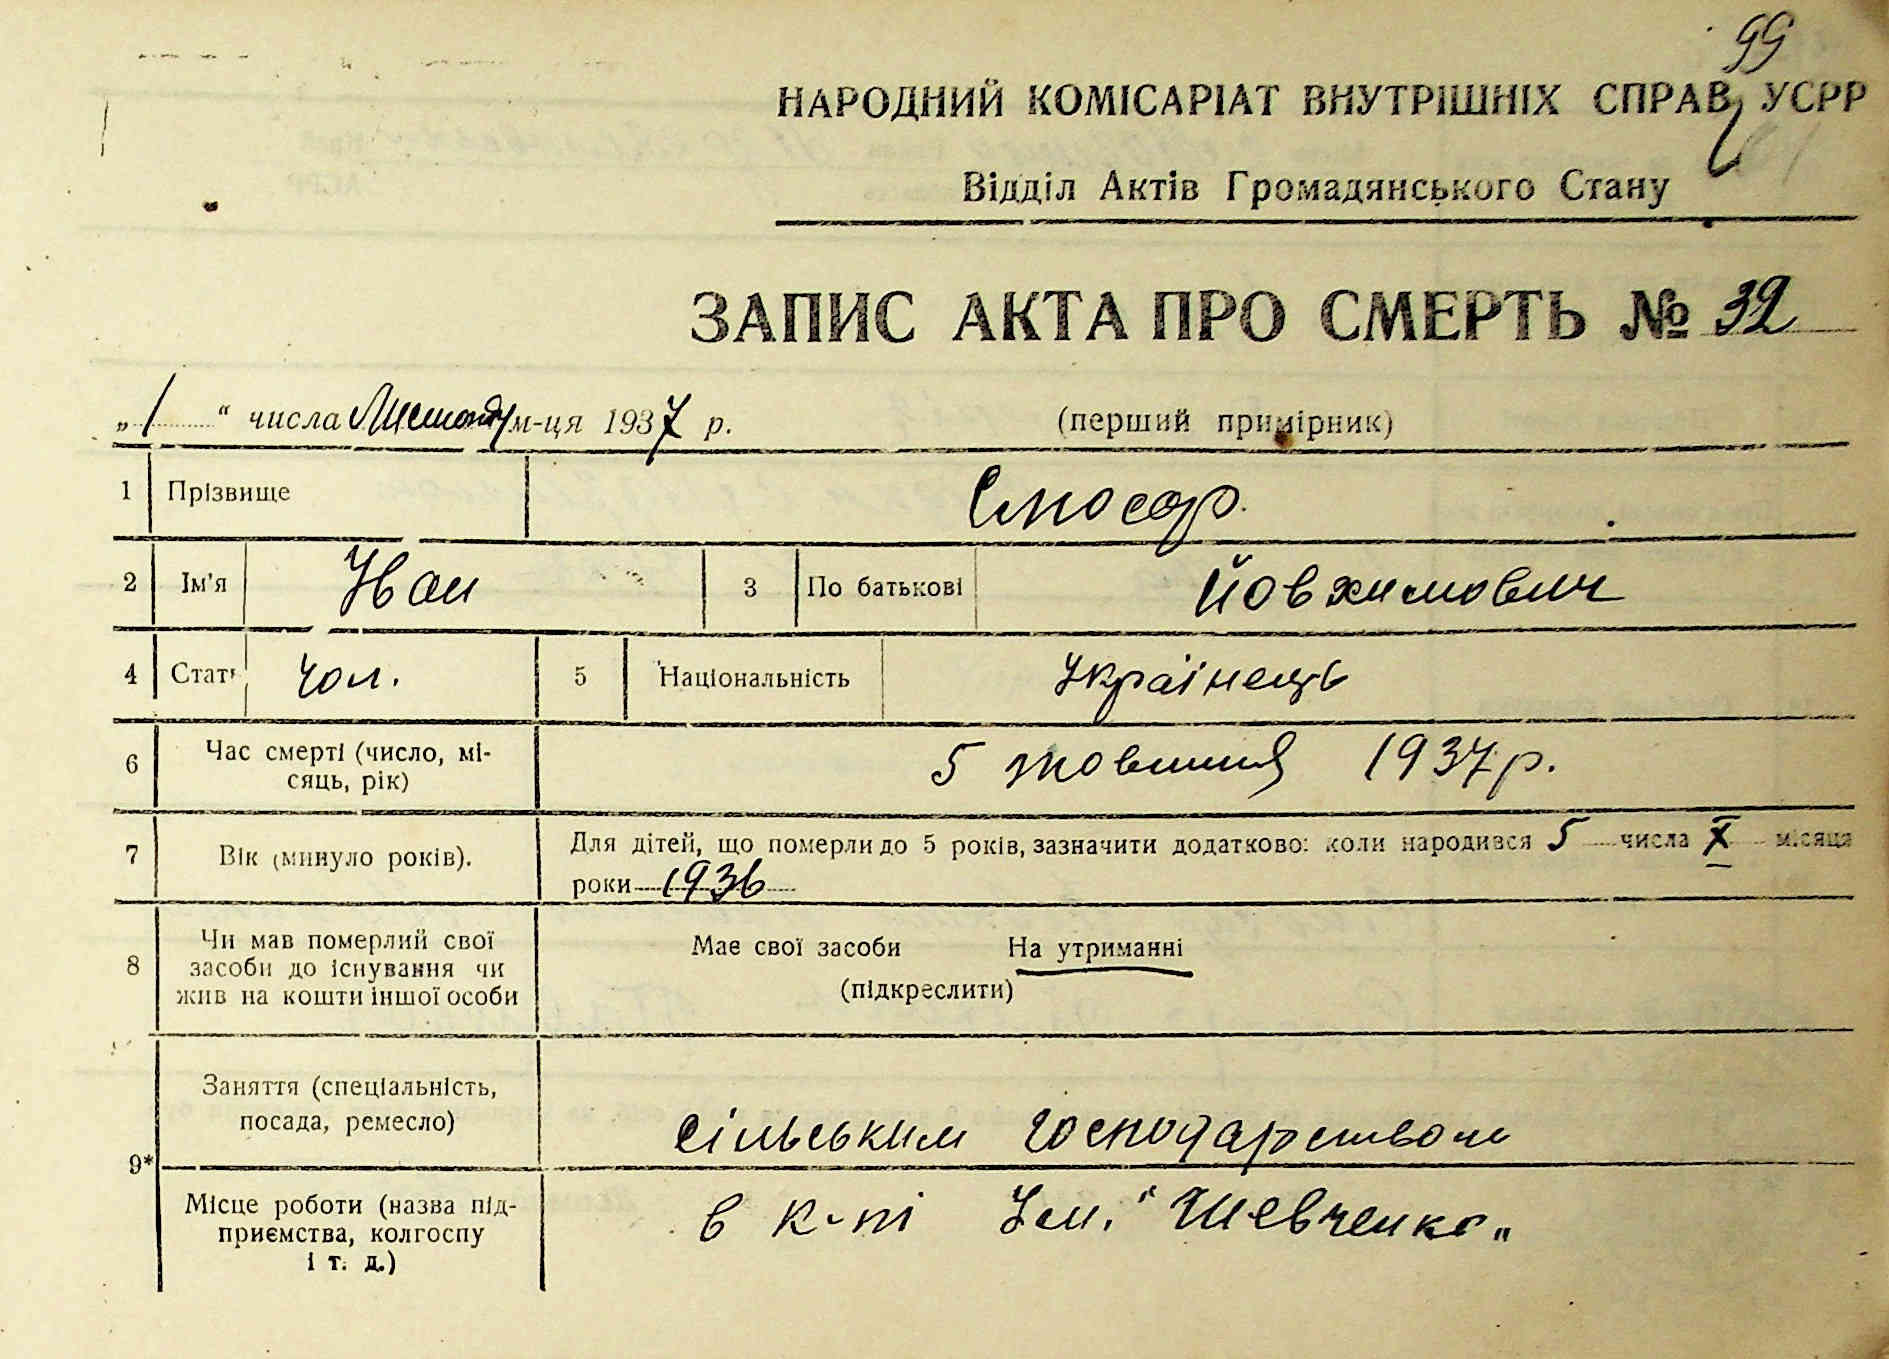 99
НАРОДНИЙ КОМІСАРІАТ ВНУТРІШНІХ СПРАВ УСРР
Відділ Актів Громадянського Стану
ЗАПИС АКТА ПРО СМЕРТЬ № 32
„1“ числа Листопаду м-ця 1937 р. (перший примірник)
1 Прізвище
2 Ім'я Иван 3 По батькові Йовхимович
4 Стать чол. 5 Національність Українець
6 Час смерті (число, мі-
сяць, рік) 5 жовтня 1937 р.
7 Вік (минуло років). Для дітей, що померли до 5 років, зазначити додатково: коли народився 5 числа X місяця
роки 1936
8 Чи мав померлий свої
засоби до існування чи
жив на кошти іншої особи Має свої засоби На утриманні
(підкреслити)
9* Заняття (спеціальність,
посада, ремесло) сільським господарством
Місце роботи (назва під-
приємства, колгоспу
і т. д.) в к-пі Ум. "Шевченко"